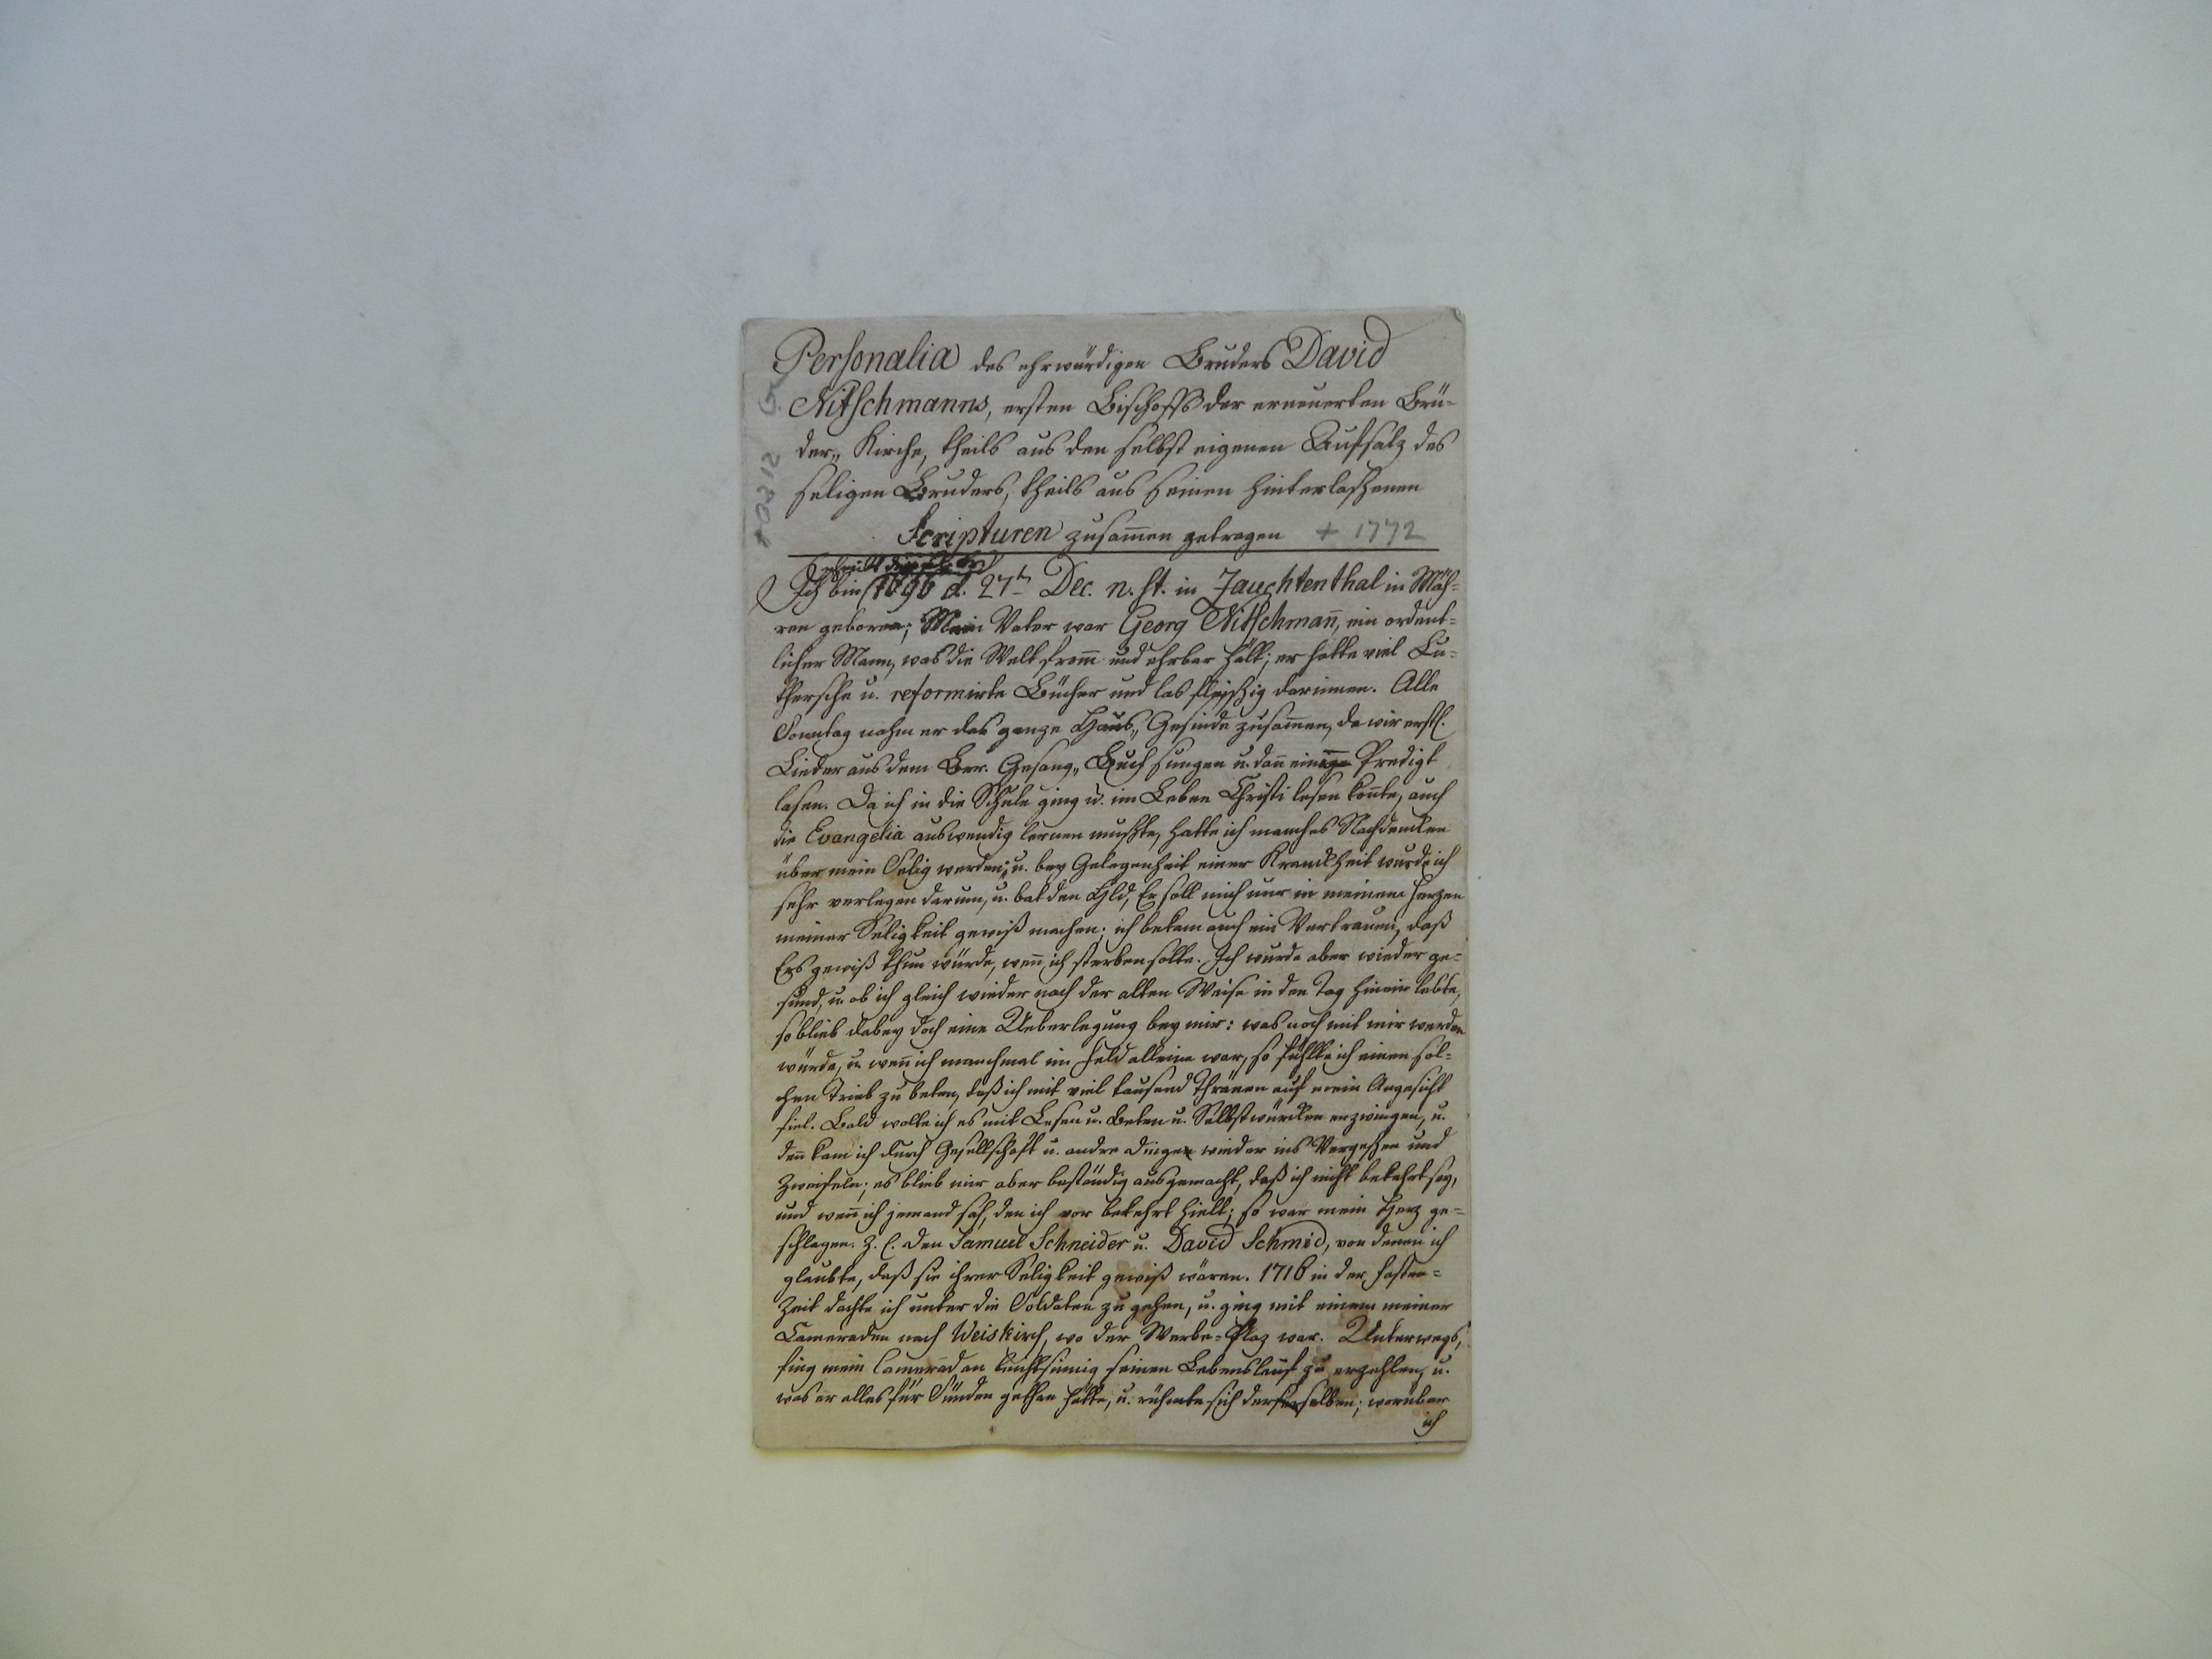 Personalia des ehrwürdigen Bruders David
Nitschmanns, ersten Bischoffs der erneuerten Brü-
der„ Kirche, theils aus den selbst eigenen Aufsatz des
seligen Bruders, theils aus seinen hinterlaßenen
Scripturen zusam̅en getragen + 1772
Ich bin 1696 d. 27t Dec. n. st. in Zauchtenthal in Mäh-
ren geboren; Mein Vater war Georg Nitschman̅, ein ordent-
licher Mann, was die Welt from̅ und ehrbar hält; er hatte viel Lu-
thersche u. reformirte Bücher und las fleißig darinnen. Alle
Sonntag nahm er das ganze Haus„ Gesinde zusam̅en, da wir erstl.
Lieder aus dem Br. Gesang„ Buch sungen u. dan̅ eine Predigt
lasen. Da ich in die Schule ging u. im Leben Christi lesen kon̅te, auch
die Evangelia auswendig lernen mußte, hatte ich manches Nachdencken
über mein Selig werden; u. bey Gelegenheit einer Kranckheit wurde ich
sehr verlegen darum, u. bat den Hld, Er soll mich nur in meinem Herzen
meiner Seligkeit gewiß machen; ich bekam auch ein Vertrauen, daß
Ers gewiß thun würde, wen̅ ich sterben solte. Ich wurde aber wieder ge-
sund, u. ob ich gleich wieder nach der alten Weise in den Tag hinein lebte,
so blieb dabey doch eine Ueberlegung bey mir: was noch mit mir werden
würde, u. wen̅ ich manchmal im Feld alleine war, so fühlte ich einen sol-
chen Trieb zu beten, daß ich mit viel tausend Thränen auf mein Angesicht
fiel. Bald wolte ich es mit Lesen u. Beten u. Selbstwürcken erzwingen, u.
den̅ kam ich durch Gesellschaft u. andre Dinge wieder ins Vergeßen und
Zweifeln; es blieb mir aber beständig ausgemacht, daß ich nicht bekehrt sey,
und wen̅ ich jemand sah, den ich vor bekehrt hielt; so war mein Herz ge-
schlagen. Z. E. den Samuel Schneider u. David Schmid, von denen ich
glaubte, daß sie ihrer Seligkeit gewiß wären. 1716 in der Fasten-
Zeit dachte ich unter die Soldaten zu gehen, u. ging mit einem meiner
Cameraden nach Weiskirch, wo der Werbe-Plaz war. Unterwegs,
fing mein Camerad an leichtsinnig seinen Lebenslauf zu erzehlen, u.
was er alles für Sünden gethan hätte, u. rühmte sich derselben; worüber
ich